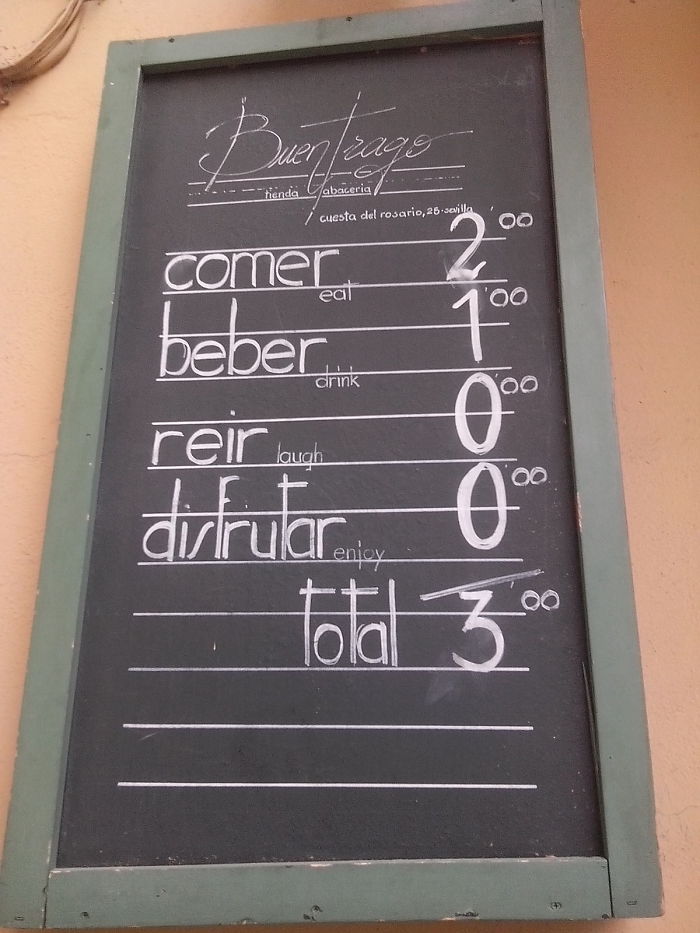 Buen Trago
tienda tabacería
cuesta del rosario, 25·sevilla
comer 2'00
eat
beber 1'00
drink
reir laugh 0'00
disfrutar enjoy 0'00
total 3'00